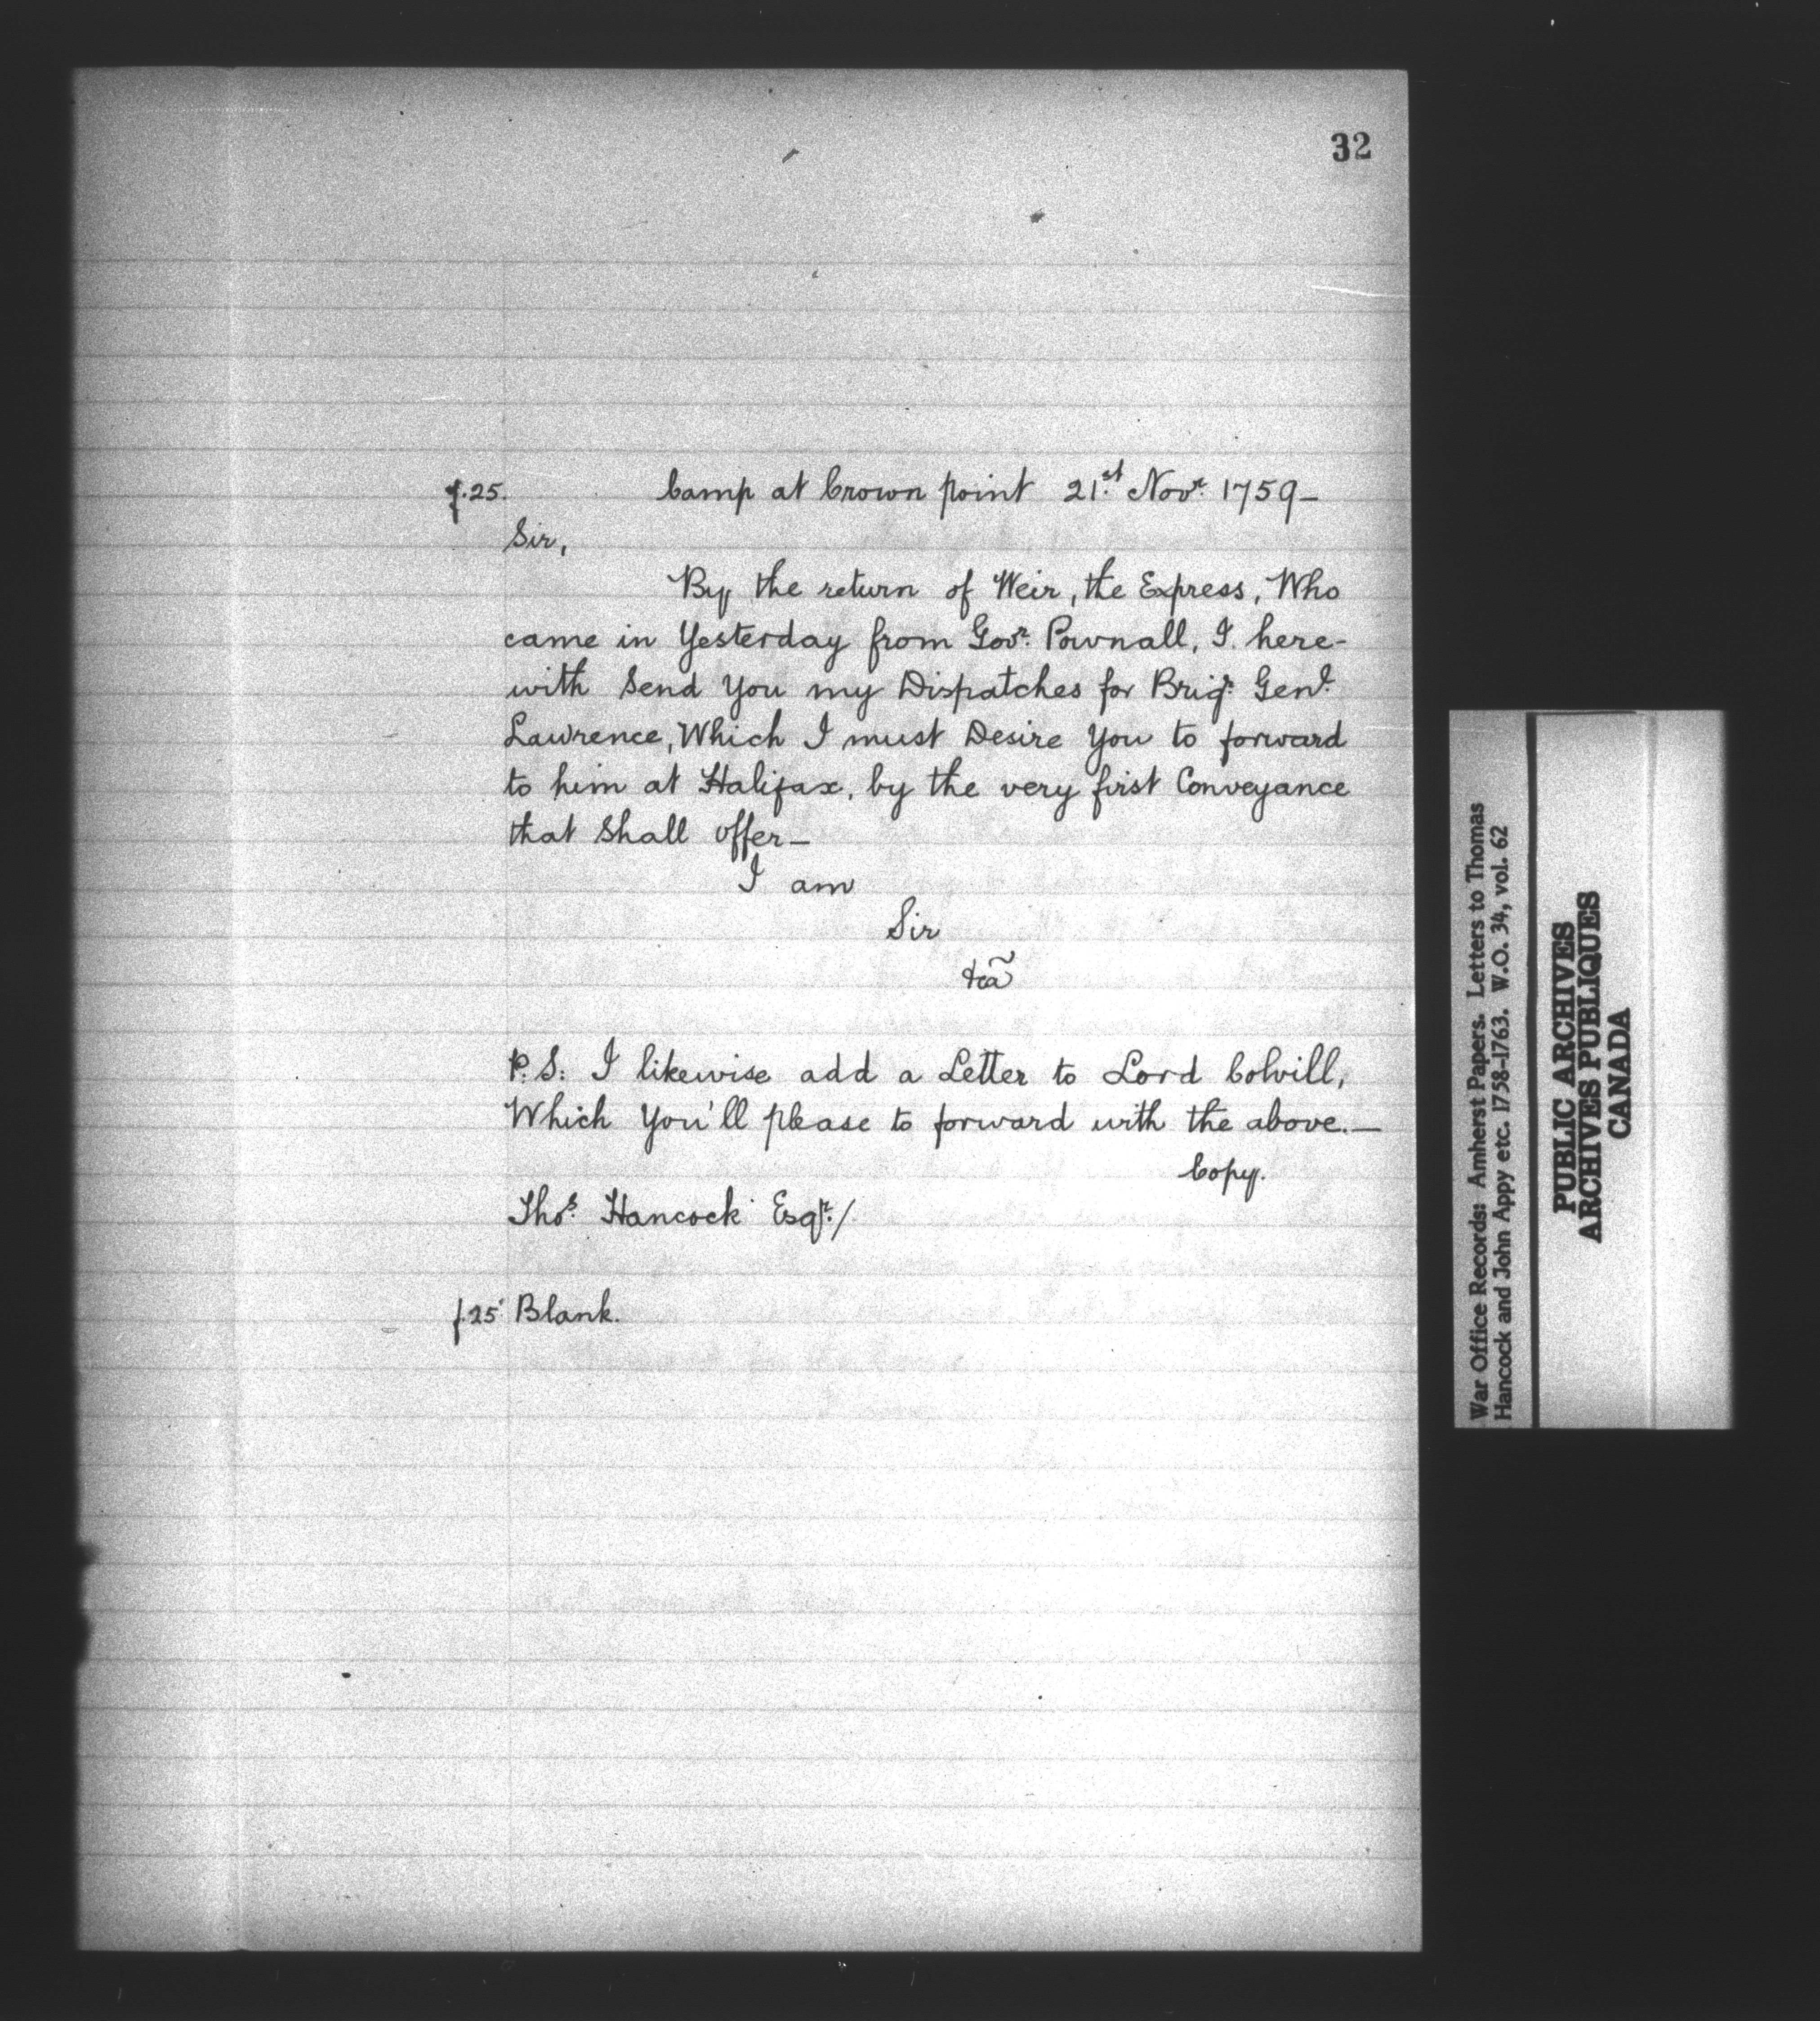 32
f.25. Camp at Crown point 21.st Novr. 1759—
Sir,
By the return of Weir, the Express, Who
came in Yesterday from Govr. Pownall, I here-
with Send You my Dispatches for Brigr. Genl.
Lawrence, Which I must Desire You to forward
to him at Halifax, by the very first Conveyance
that Shall offer—
I am
Sir
&ca
P.S: I likewise add a Letter to Lord Colvill,
Which You'll please to forward with the above.—
Copy.
Thos. Hancock Esqr./
f.25' Blank.
War Office Records: Amherst Papers. Letters to Thomas
Hancock and John Appy etc. 1758-1763. W.O. 34, vol. 62
PUBLIC ARCHIVES
ARCHIVES PUBLIQUES
CANADA